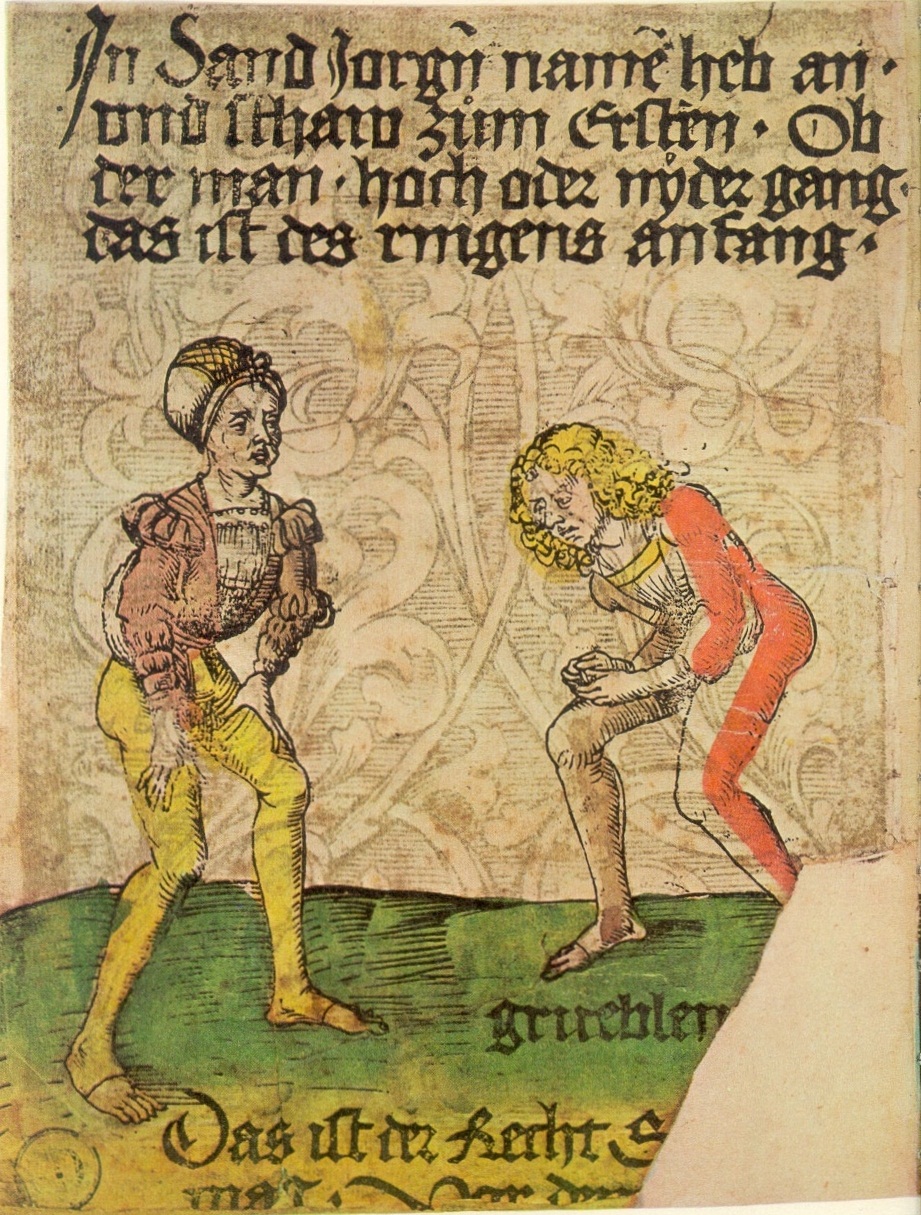 In Sand Jorgñ namē heb an ·
vnd schaw zům Ersten · Ob
der man · hoch oder nyder gang ·
das ist des ringens anfang ·
grueblen
Das ist der Recht S